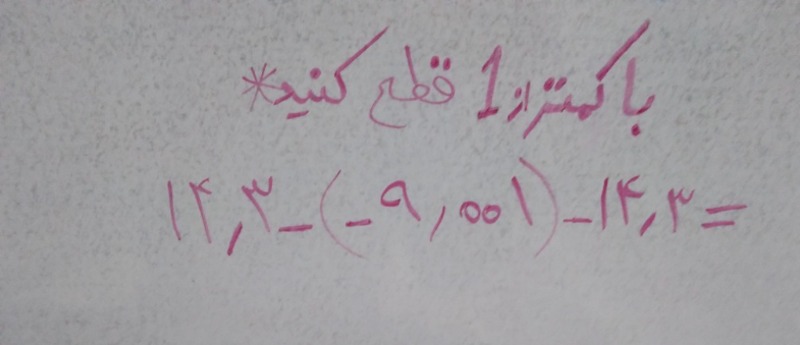 با کمتر از 1 قطع کنید*
۱۴٫۳-(-۹٫۰۰۱)-۱۴٫۳=